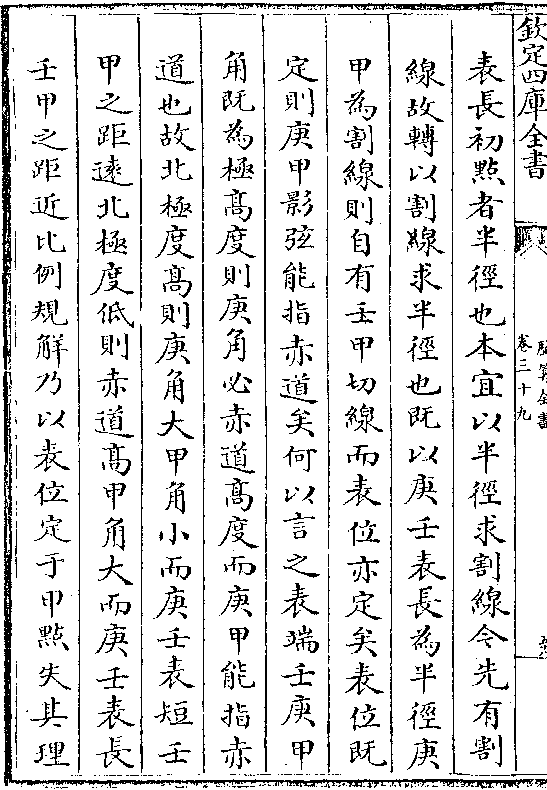 欽定四庫全書
卷三十九
厯算全書
表長初㸃者半徑也本宜以半徑求割線今先有割
線故轉以割線求半徑也既以庚壬表長為半徑庚
甲為割線則自有壬甲切線而表位亦定矣表位既
定則庚甲影弦能指赤道矣何以言之表端壬庚甲
角既為極髙度則庚角必赤道髙度而庚甲能指赤
道也故北極度髙則庚角大甲角小而庚壬表短壬
甲之距逺北極度低則赤道髙甲角大而庚壬表長
壬甲之距近比例規解乃以表位定于甲㸃失其理